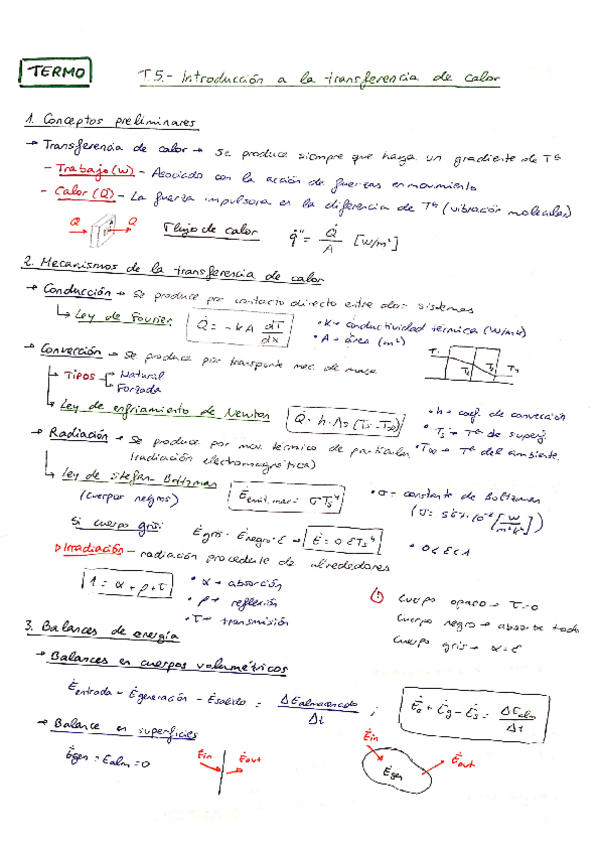 TERMO
T.5.- Introducción a la transferencia de calor
1. Conceptos preliminares
→ Transferencia de calor → Se produce siempre que haya un gradiente de Tª
- Trabajo (W) - Asociado con la acción de fuerzas en movimiento
- Calor (Q) - La fuerza impulsora es la diferencia de Tª (vibración molecular)
Q Q Flujo de calor q̇" = Q̇/A [W/m²]
2. Mecanismos de la transferencia de calor
→ Conducción → Se produce por contacto directo entre dos sistemas
↳ Ley de Fourier Q̇ = -kA dT/dx
• K → conductividad térmica (W/mk)
• A → área (m²)
→ Convección → Se produce por transporte mec. de masa
↳ Tipos Natural
Forzada
↳ Ley de enfriamiento de Newton Q̇ = h·As(Ts-T∞)
• h → coef. de convección
• Ts → Tª de superf.
• T∞ → Tª del ambiente.
→ Radiación → Se produce por mov. térmico de partículas
(radiación electromagnética)
↳ Ley de Stefan-Boltzman
(cuerpos negros)
Ė emit. max = σTs⁴
• σ = constante de Boltzman
(σ = 5'67·10⁻⁸ [W/m²k⁴])
Si cuerpo gris: Ė gris = Ė negro·ε → Ė = σεTs⁴ • 0≤ε≤1
▷ Irradiación - radiación procedente de alrededores
1 = α + ρ + τ
• α → absorción
• ρ → reflexión
• τ → transmisión
! Cuerpo opaco → τ=0
Cuerpo negro → absorbe todo
Cuerpo gris → α=ε
3. Balances de energía
→ Balances en cuerpos volumétricos
Ė entrada - Ė generación - Ė salida = ΔE almacenada/Δt ; Ėe + Ėg - Ės = ΔE alm/Δt
→ Balance en superficies
Ė gen = E alm = 0
Ėin Ėout
Ėin Ėgen Ėout